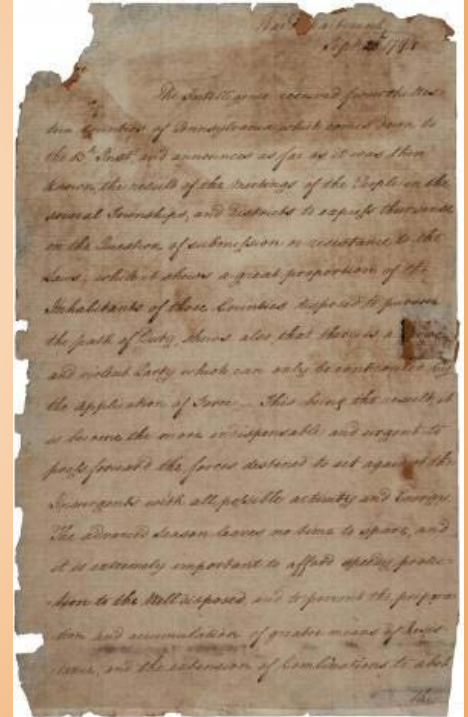 War Department
Sept. 20th 1794
The Intelligence received from the Wes-
tern Counties of Pennsylvania which comes down to
the 13th Inst. and announces as far as it was then
known, the result of the Meetings of the People in the
several Townships, and Districts to express their sense
on the Question of submission or resistance to the
Laws; while it shews a great proportion of the
Inhabitants of those Counties disposed to pursue
the path of Duty, shews also that there is a
and violent Party which can only be controuled by
the application of Force — This being the result, it
is become the more indispensable and urgent to
press forward the forces destined to act against the
Insurgents with all possible activity and Energy
The advanced season leaves no time to spare, and
it is extremely important to afford speedy protec-
tion to the Well disposed, and to prevent the prepara-
tion and accumulation of greater means of Resis-
tance, and the extension of Combinations to abet
the